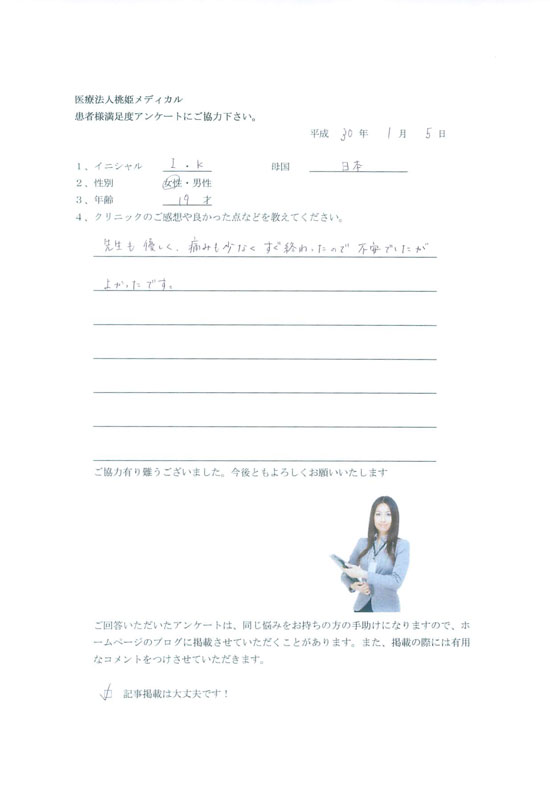 医療法人桃姫メディカル
患者様満足度アンケートにご協力下さい。
平成 30 年 1 月 5 日
1、イニシャル I・K 母国 日本
2、性別 女性・男性
3、年齢 19 才
4、クリニックのご感想や良かった点などを教えてください。
先生も優しく、痛みも少なくすぐ終わったので不安でしたが
よかったです。
ご協力有り難うございました。今後ともよろしくお願いいたします
ご回答いただいたアンケートは、同じ悩みをお持ちの方の手助けになりますので、ホ
ームページのブログに掲載させていただくことがあります。また、掲載の際には有用
なコメントをつけさせていただきます。
記事掲載は大丈夫です！